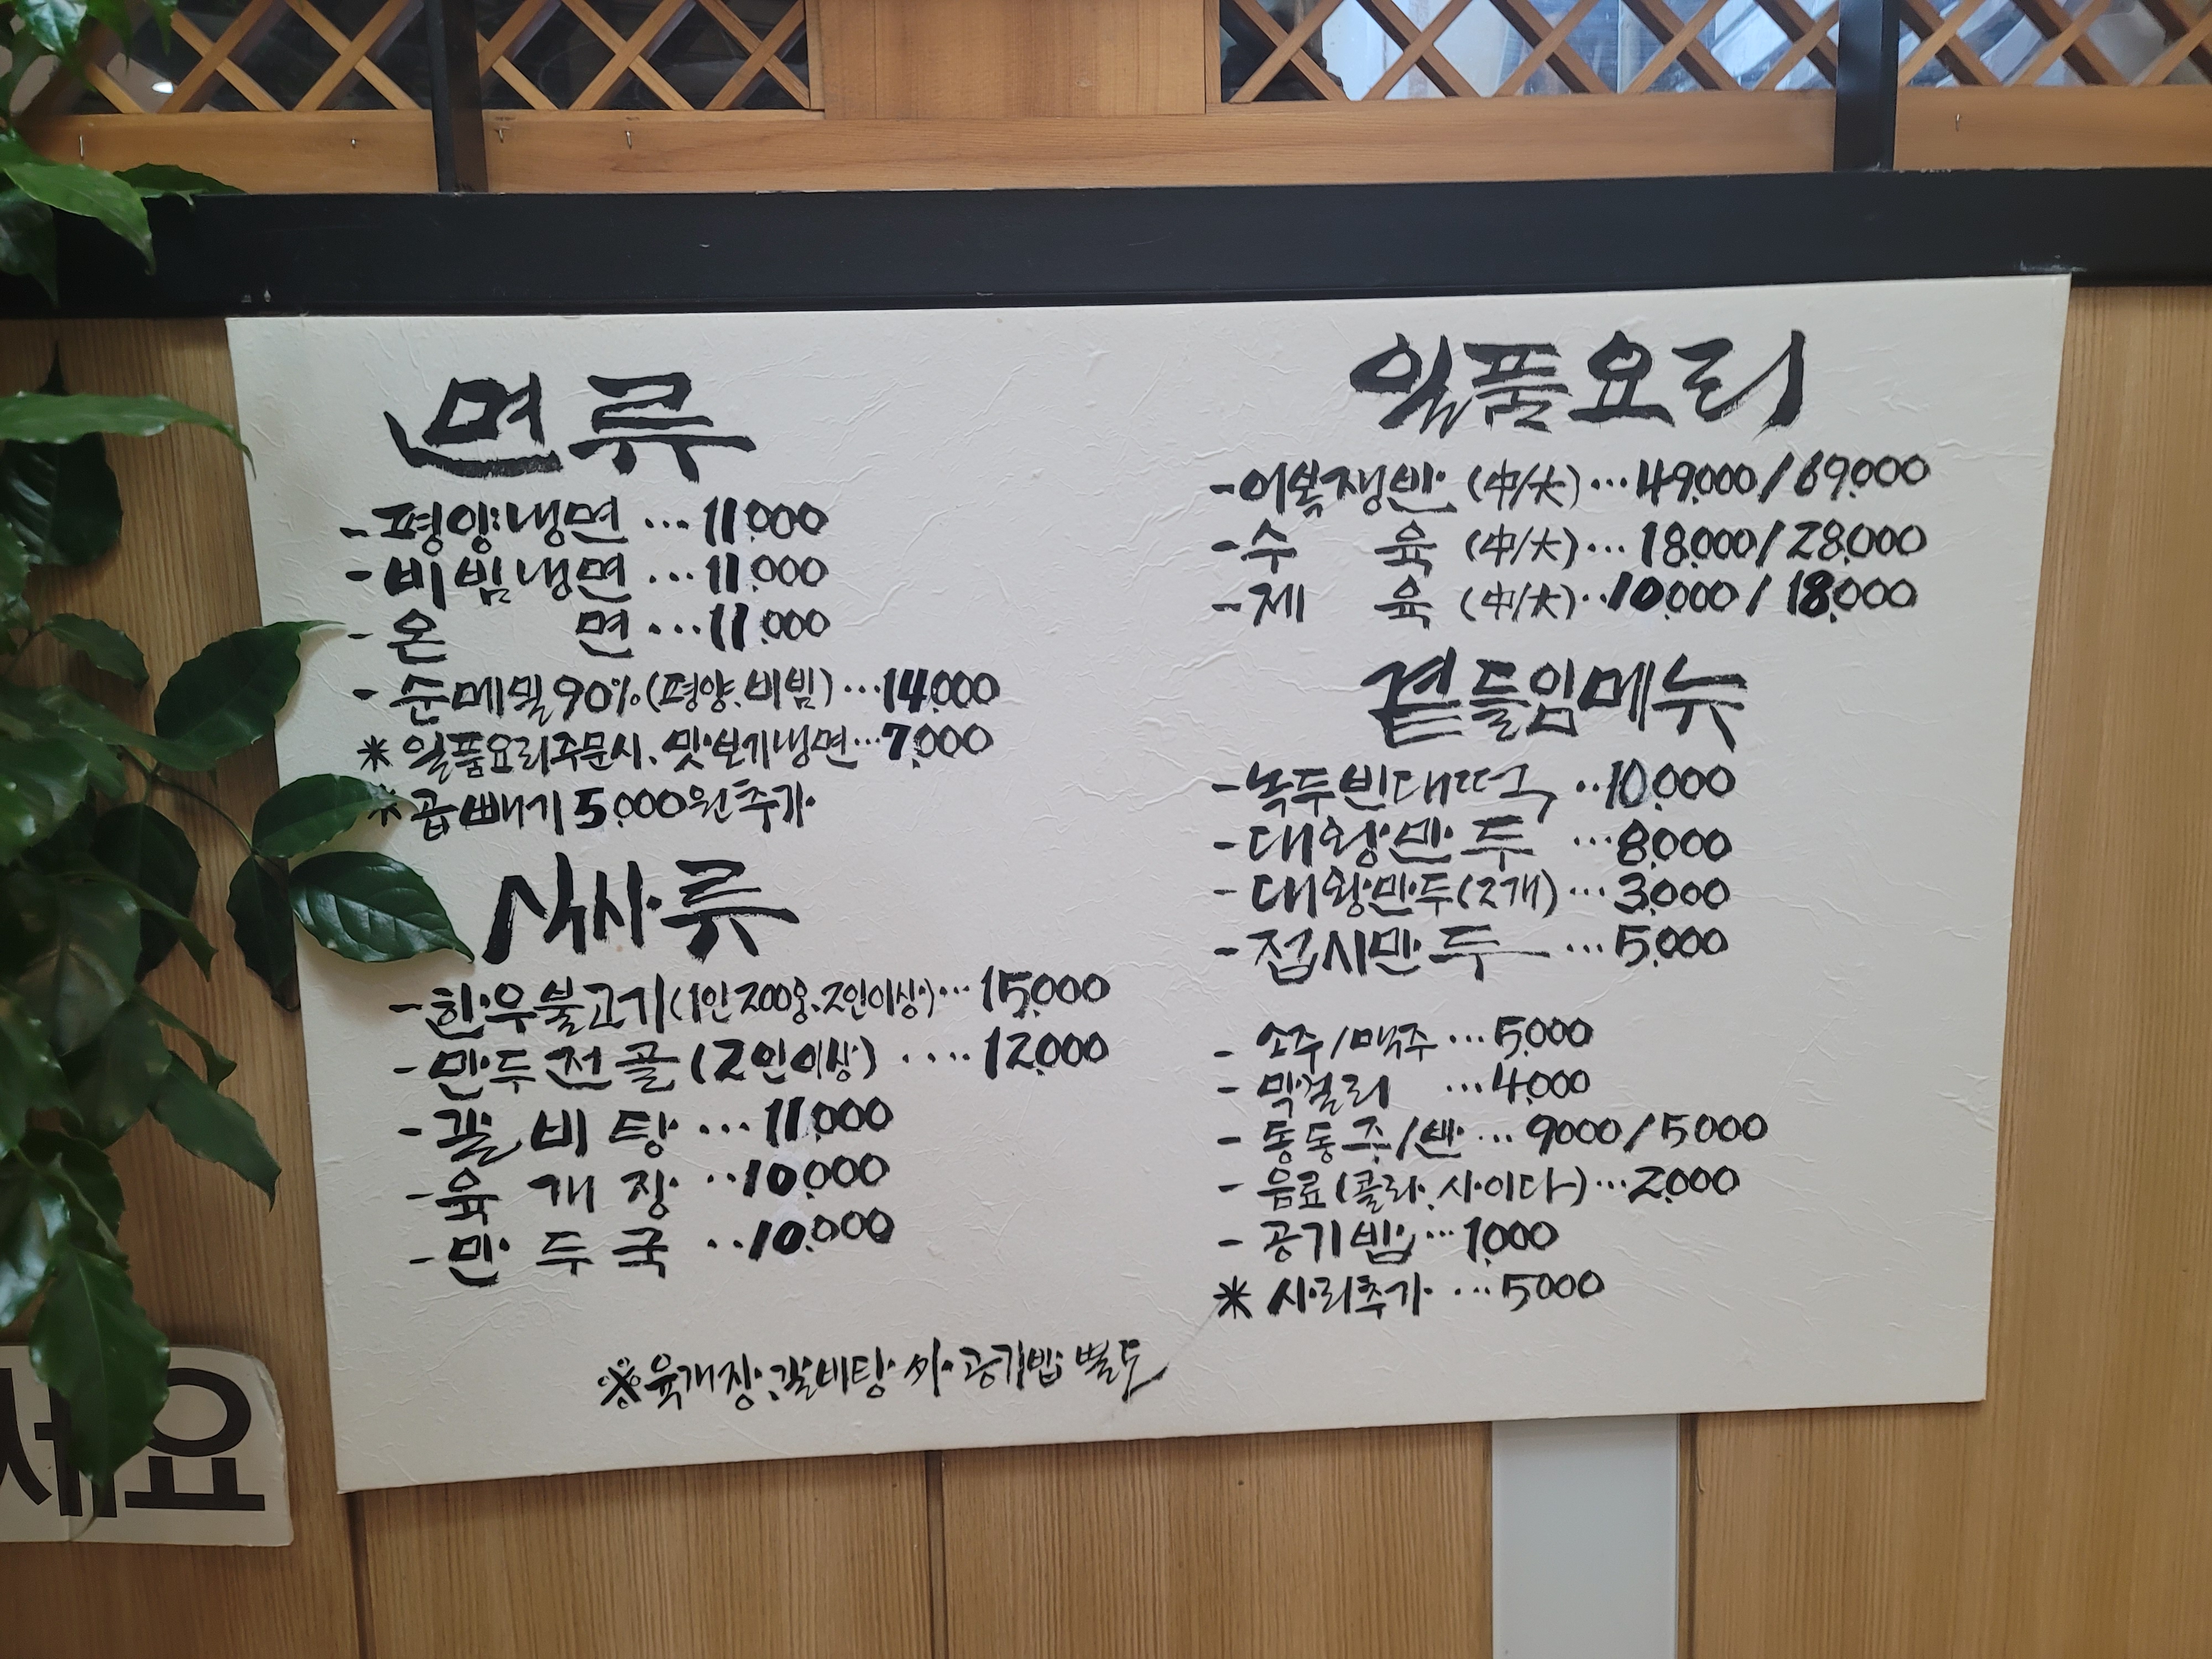 면류
-평양냉면 ... 11,000
-비빔냉면 ... 11,000
-온 면 ... 11,000
-순메밀90%(평양.비빔) ... 14,000
* 일품요리주문시, 맛보기냉면 ... 7,000
* 곱빼기 5,000원추가
식사류
-한우불고기(1인200g,2인이상) ... 15,000
-만두전골(2인이상) .... 12,000
-갈비탕 ... 11,000
-육개장 .. 10,000
-만두국 .. 10,000
일품요리
-어복쟁반 (中/大) ... 49,000/69,000
-수 육 (中/大) ... 18,000/28,000
-제 육 (中/大) .. 10,000/18,000
곁들임메뉴
-녹두빈대떡 .. 10,000
-대왕만두 ... 8,000
-대왕만두(2개) ... 3,000
-접시만두 ... 5,000
- 소주/맥주 ... 5,000
- 막걸리 ... 4,000
- 동동주/반 ... 9000/5000
- 음료(콜라,사이다) ... 2,000
- 공기밥 ... 1,000
* 사리추가 ... 5000
※육개장,갈비탕 外 공기밥 별도
요